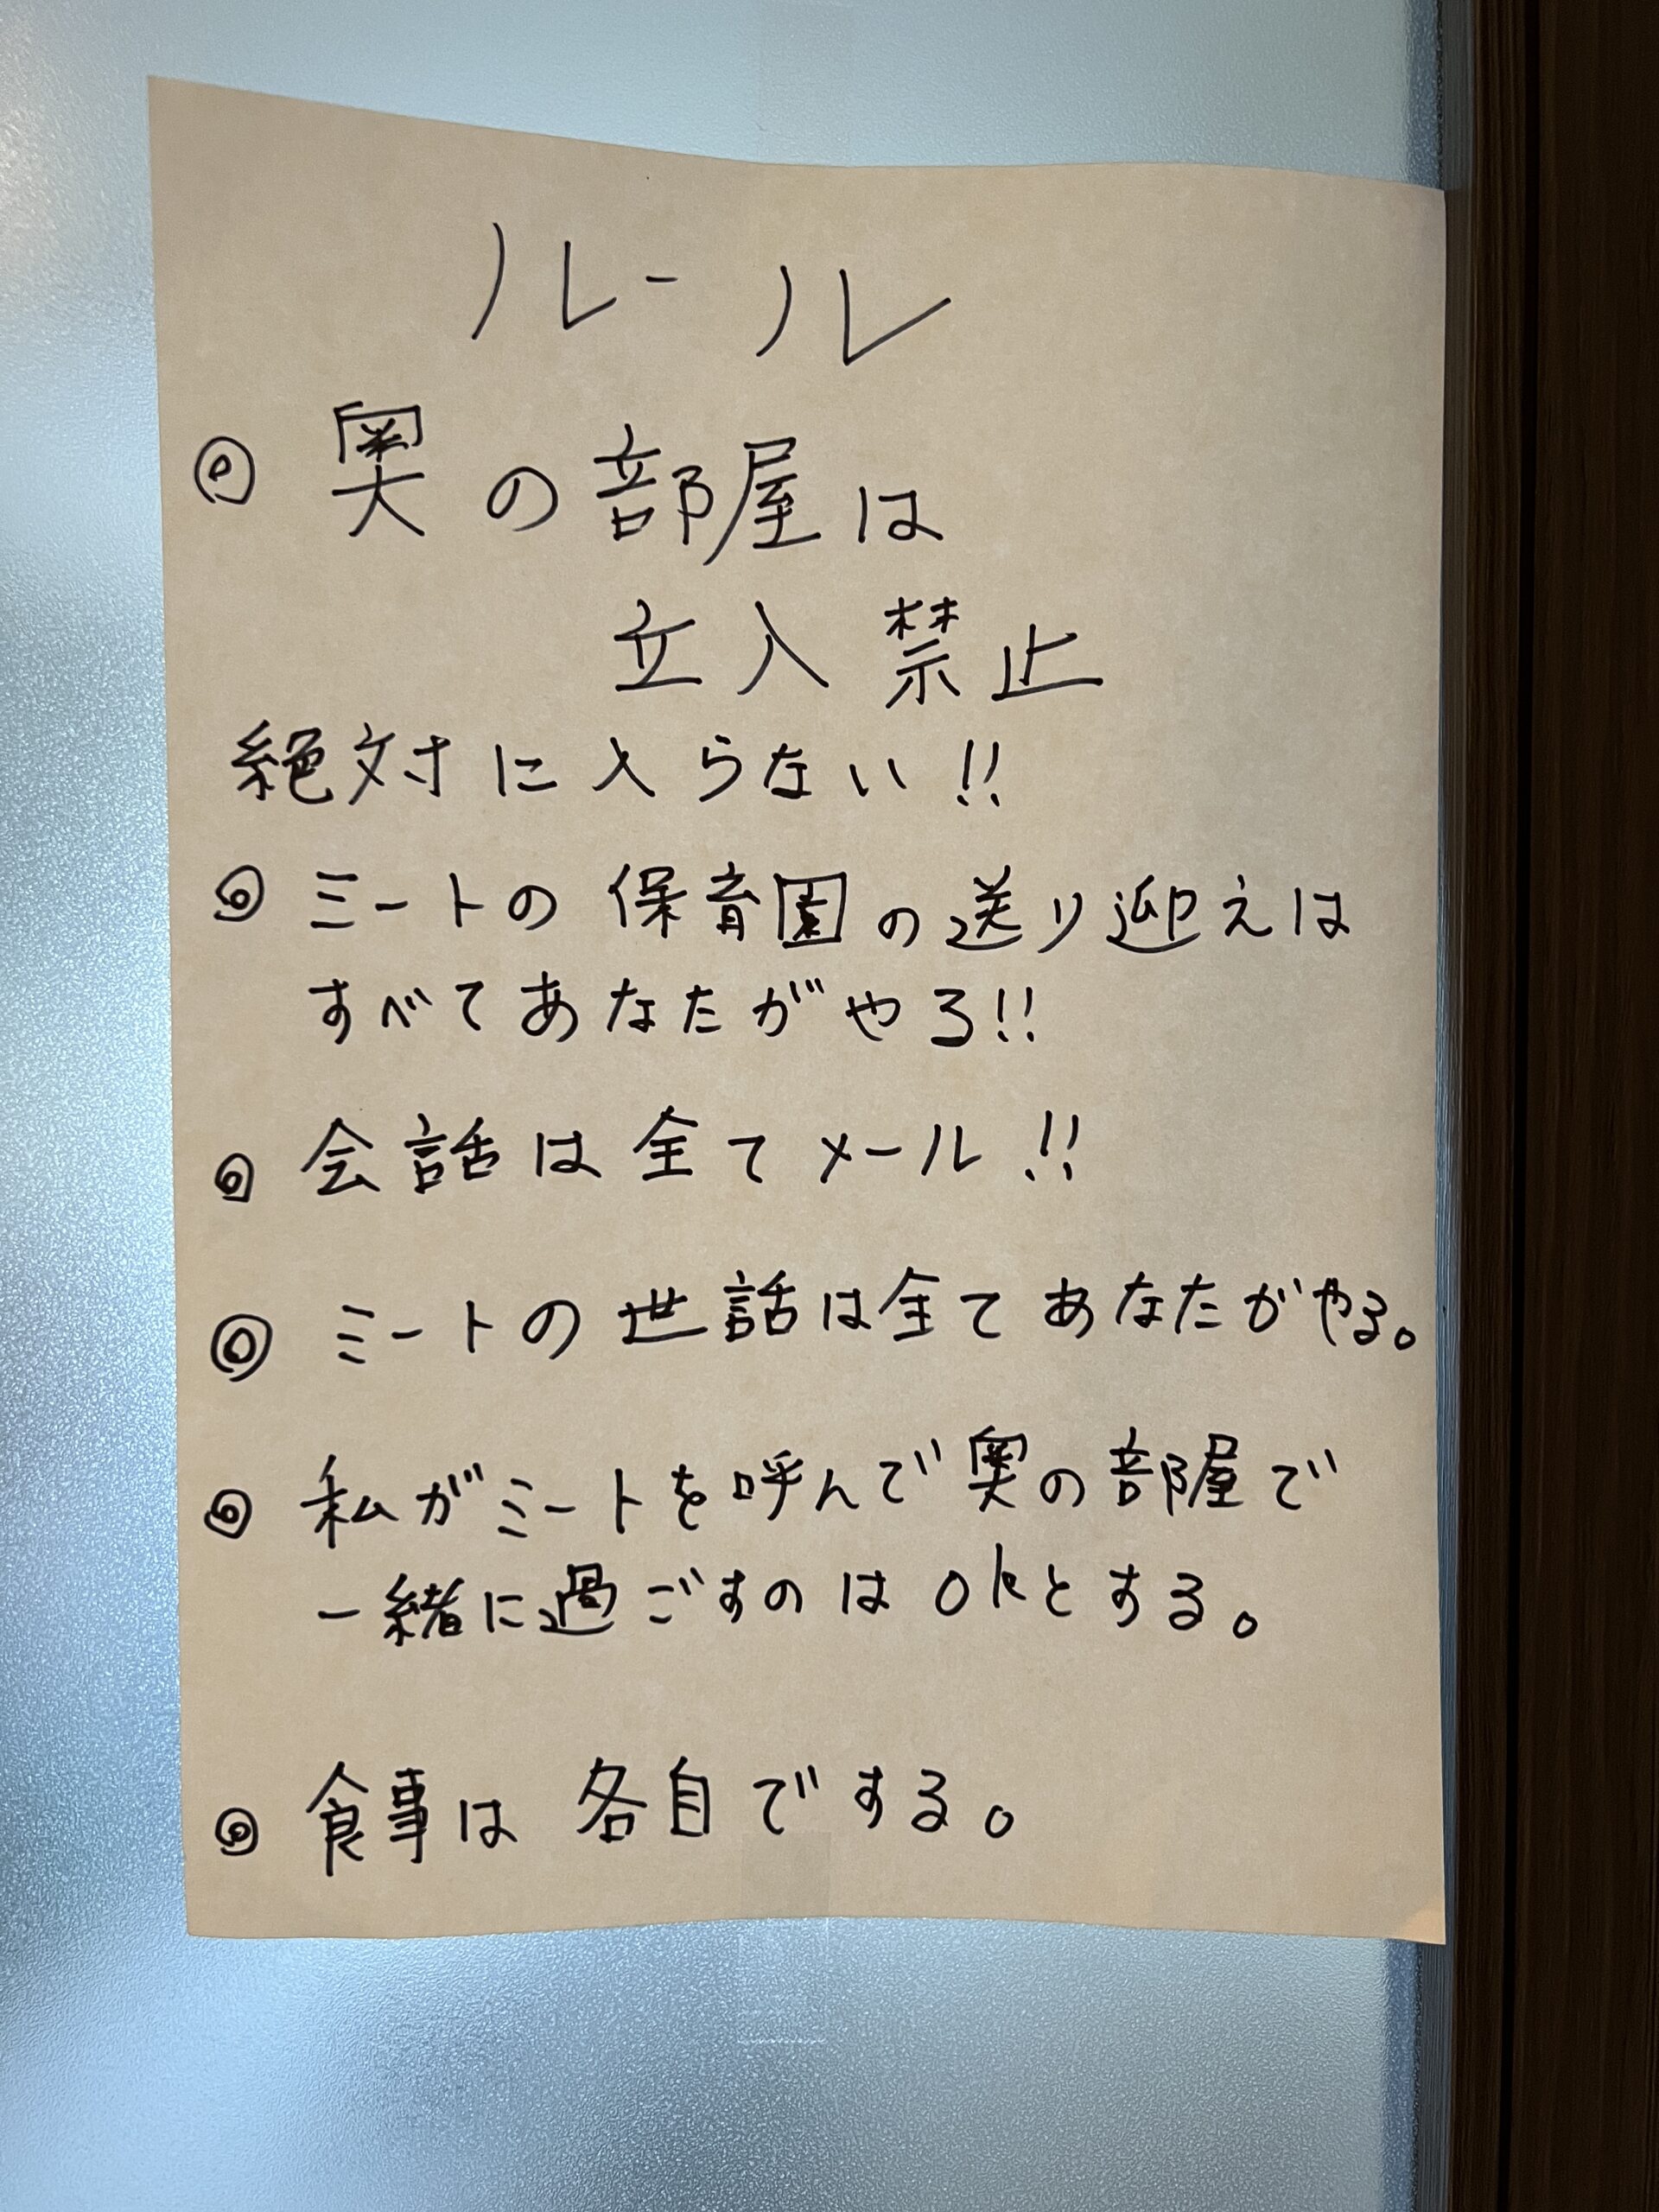 ルール
◎ 奥の部屋は
立入禁止
絶対に入らない!!
◎ ミートの保育園の送り迎えは
すべてあなたがやろ!!
◎ 会話は全てメール!!
◎ ミートの世話は全てあなたがやる。
◎ 私がミートを呼んで奥の部屋で
一緒に過ごすのはokとする。
◎ 食事は各自でする。